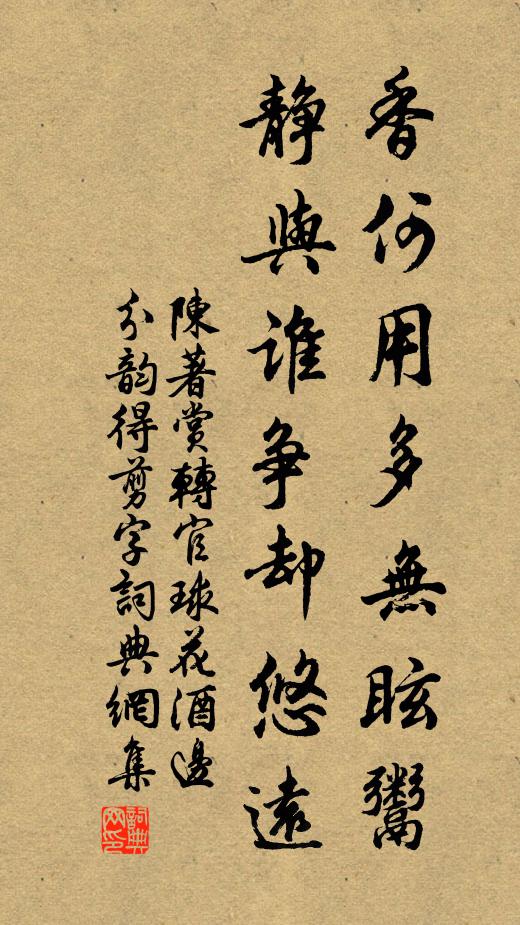 香何用多無眩鬻
靜與誰爭却悠遠
陳著賞轉官球花酒邊
分韵得剪字詞典網集
詞典网印